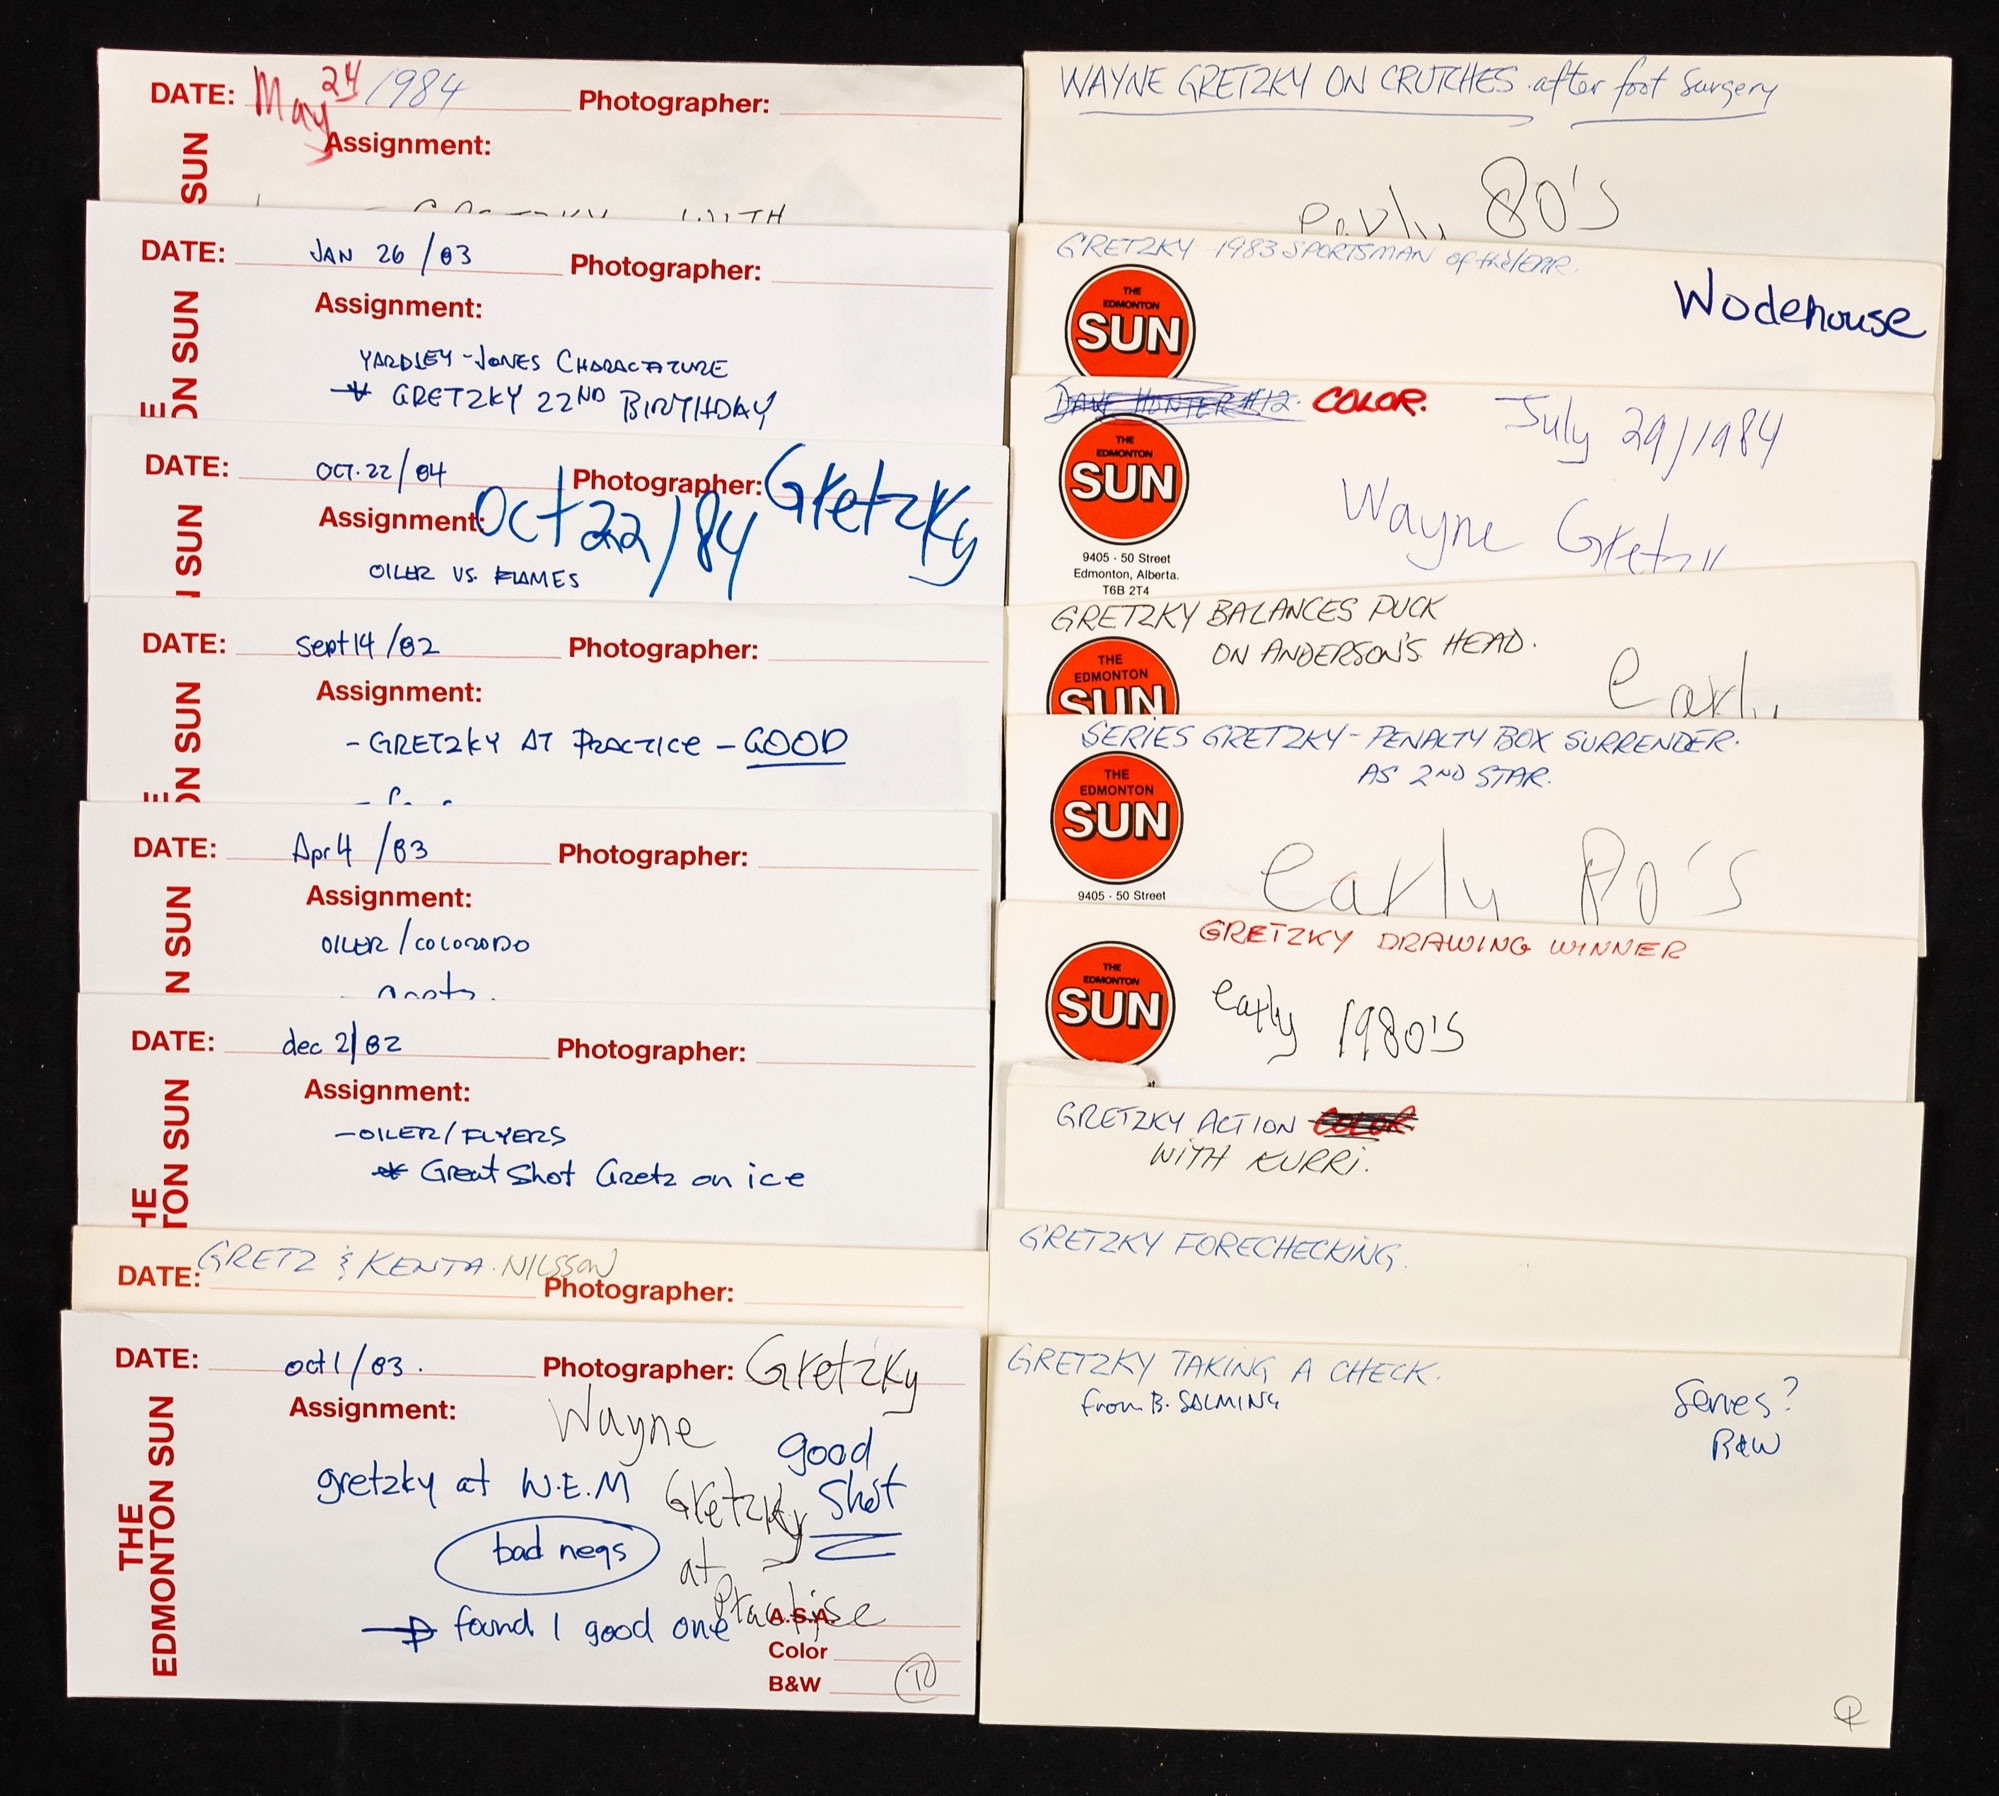 DATE: May 24/1984 Photographer:
Assignment:
SUN
GRETZKY WITH
DATE: JAN 26/83 Photographer:
Assignment:
YARDLEY-JONES CHARACATURE
GRETZKY 22ND BIRTHDAY
ON SUN
DATE: OCT.22/84 Photographer: Gretzky
Assignment: Oct 22/84
OILER VS. FLAMES
N SUN
DATE: Sept 14/82 Photographer:
Assignment:
- GRETZKY AT PRACTICE - GOOD
ON SUN
DATE: Apr 4/83 Photographer:
Assignment:
OILER/COLORADO
N SUN
DATE: dec 2/82 Photographer:
Assignment:
- OILER/FLYERS
* Great Shot Gretz on ice
HE
TON SUN
GRETZ & KENTA NILSSON
DATE: Photographer:
DATE: oct 1/83. Photographer: Gretzky
Assignment: Wayne
gretzky at W.E.M
Gretzky
at
Practise
good
Shot
bad negs
→ found 1 good one
A.S.A.
Color
B&W
THE
EDMONTON SUN
WAYNE GRETZKY ON CRUTCHES after foot Surgery
early 80's
GRETZKY 1983 SPORTSMAN of the YEAR.
THE
EDMONTON
SUN
Wodehouse
DAVE HUNTER #12. COLOR.
July 29/1984
Wayne Gretzky
THE
EDMONTON
SUN
9405 - 50 Street
Edmonton, Alberta.
T6B 2T4
GRETZKY BALANCES PUCK
ON ANDERSON'S HEAD.
early
THE
EDMONTON
SUN
SERIES GRETZKY - PENALTY BOX SURRENDER.
AS 2ND STAR.
THE
EDMONTON
SUN
9405 - 50 Street
early 80's
GRETZKY DRAWING WINNER
early 1980's
THE
EDMONTON
SUN
GRETZKY ACTION COLOR
WITH KURRI.
GRETZKY FORECHECKING.
GRETZKY TAKING A CHECK.
from B. SALMING
Series?
B&W